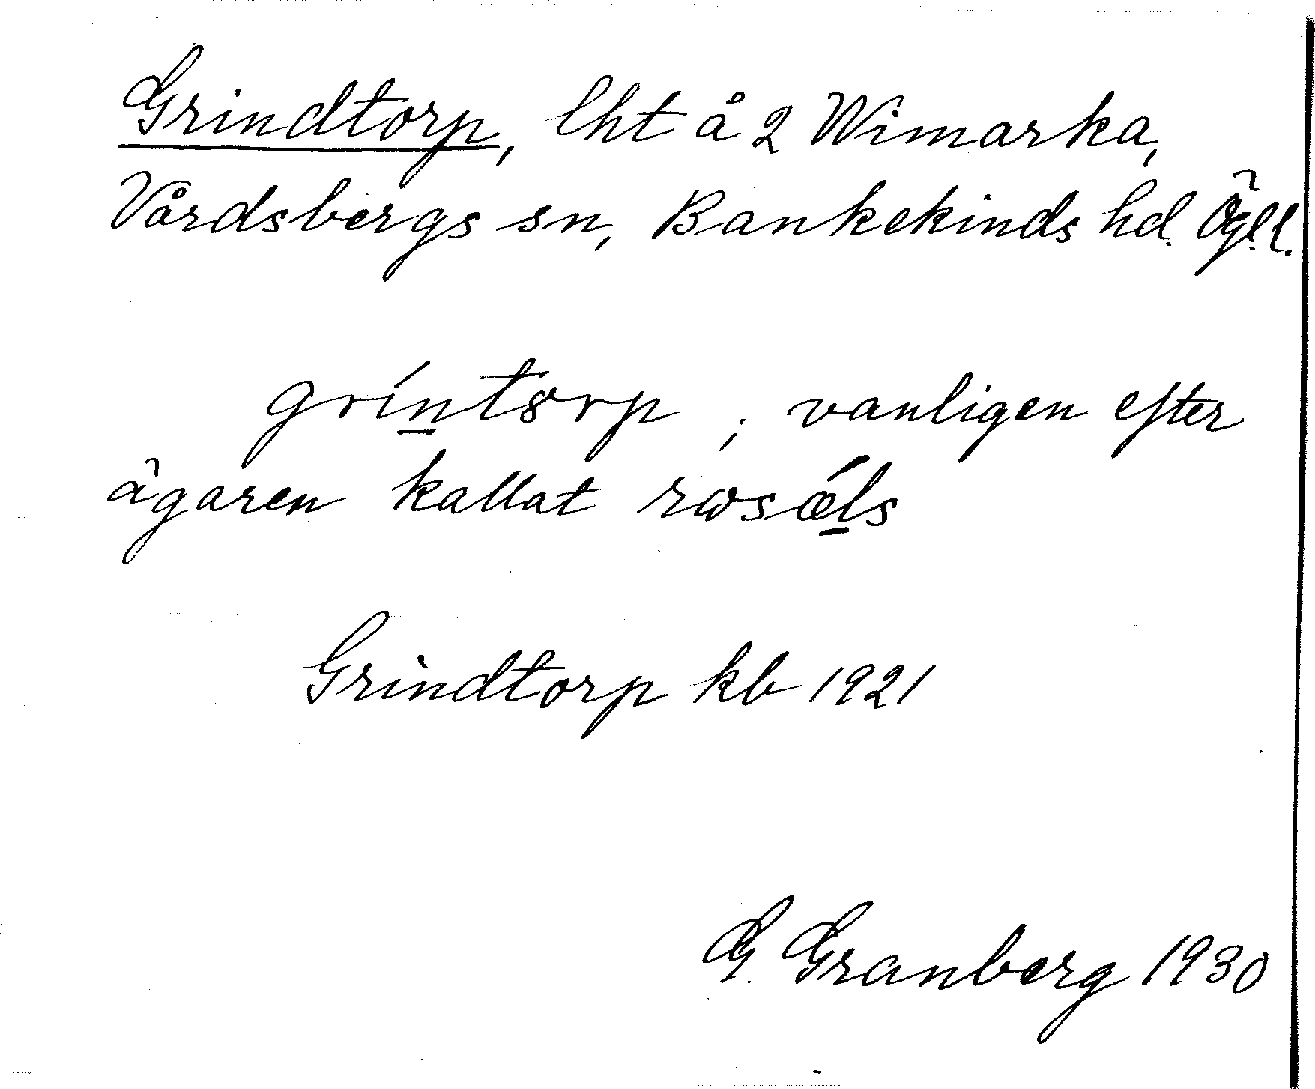 Grindtorp, lht å 2 Wimarka,
Vårdsbergs sn, Bankekinds hd. Ögll.
gríntorp ; vanligen efter
ägaren kallat rosǽls
Grindtorp kb 1921
G. Granberg 1930